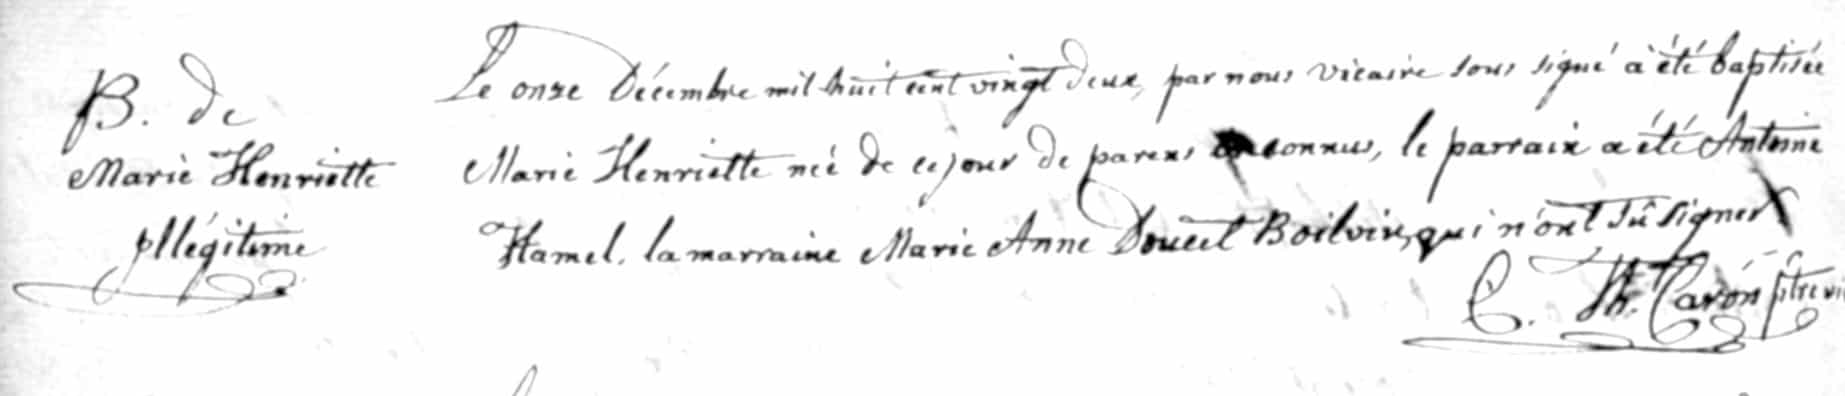 B. de
Marie Henriette
Illégitime
Le onze Décembre mil huit cent vingt deux, par nous vicaire sous signé a été baptisée
Marie Henriette neé de ce jour de parens inconnus, le parrain a été Antoine
Hamel, la marraine Marie Anne Doucet Boilvin, qui n'ont sû signer
C. Th. Caron ptre vic